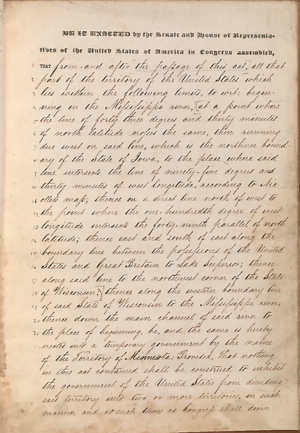 BE IT ENACTED by the Senate and House of Representa-
tives of the United States of America in Congress assembled,
THAT from and after the passage of this act, all that
part of the territory of the United States which
lies within the following limits, to wit: begin-
ning in the Mississippi river, at a point where
the line of forty three degrees and thirty minutes
of north latitude crosses the same, then running
due west on said line, which is the northern bound
ary of the State of Iowa, to the place where said
line intersects the line of
thirty minutes of west longitude, according to
thence on a direct line north of west to
the point where the one-hundredth degree of west
longitude intersects the forty-ninth parallel of north
latitude; thence east and south of east along the
boundary line between the possessions of the United
States and Great Britain to Lake Superior; thence
along said lake to the northwest corner of the State
of Wisconsin; thence along the western boundary line
of said State of Wisconsin to the Mississippi river;
thence down the main channel of said river to
the place of beginning, be, and the same is hereby
into a temporary government by the name
of the Territory of Minnesota: Provided, That nothing
in this act contained shall be construed to inhibit
the government of the United States from dividing
said territory into two or more territories, in such
manner and at such times as Congress shall deem